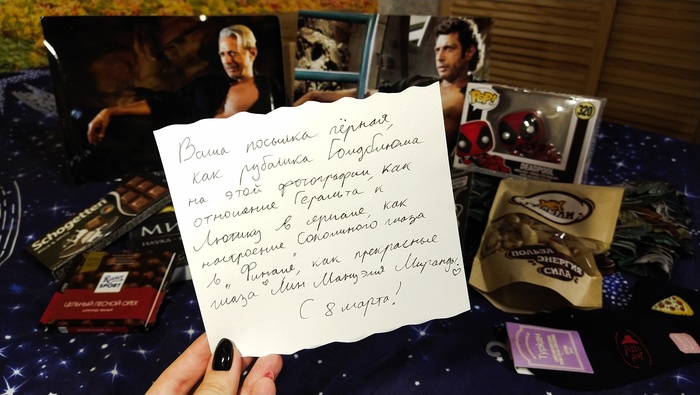 Ваша посылка чёрная,
как рубашка Голдблюма
на этой фотографии, как
отношение Геральта к
Лютику в сериале, как
настроение Соколиного глаза
в "Финале", как прекрасные
глаза Лин Мануэля Миранды!
С 8 марта!
POP!
320
DEADPOOL
Schogetten
МИ
НАУКА
Ritter
SPORT
ЦЕЛЬНЫЙ ЛЕСНОЙ ОРЕХ
ПОЛЬЗА
ЭНЕРГИЯ
СИЛА